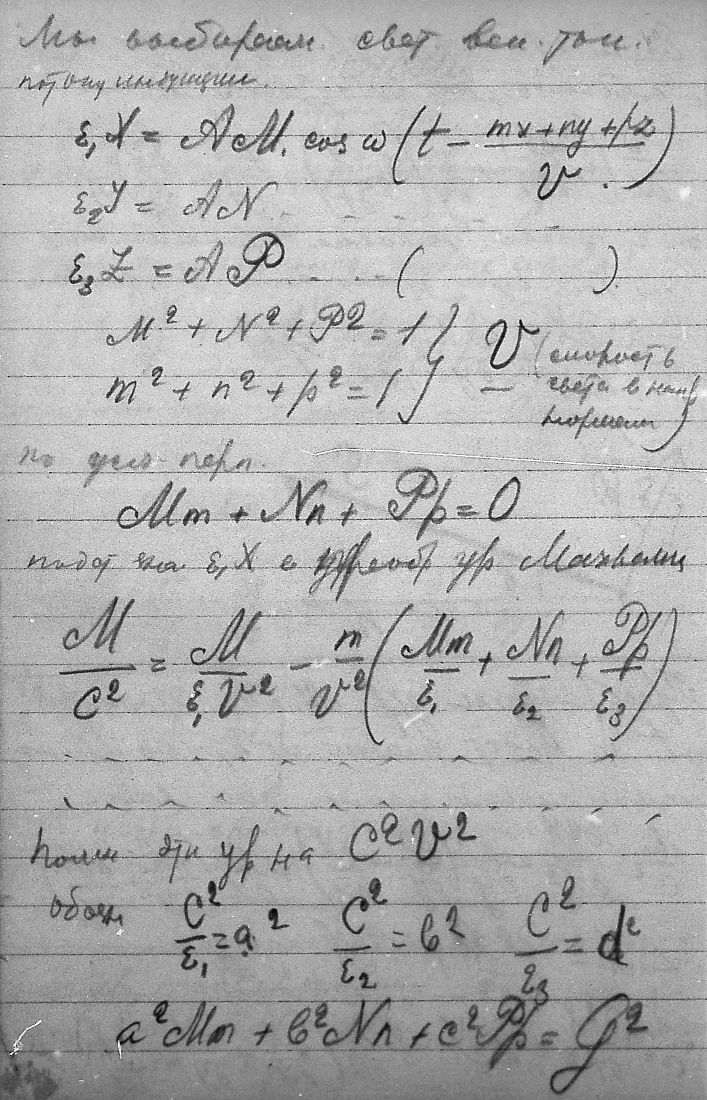 Мы выбираем свет. век. той.
потому
ε₁X = AM. cos ω (t − (mx + ny + pz)/V)
ε₂Y = AN
ε₃Z = AP . . . ( )
M² + N² + P² = 1 } V (скорость
m² + n² + p² = 1 света в нап
нормали)
по усл. перп.
Mm + Nn + Pp = 0
подст зна. ε₁X в ур Максвелл
M/C² = M/(ε₁V²) − m/V² (Mm/ε₁ + Nn/ε₂ + Pp/ε₃)
эти ур на C²V²
обозн C²/ε₁ = a² C²/ε₂ = b² C²/ε₃ = d²
a²Mm + b²Nn + c²Pp = G²